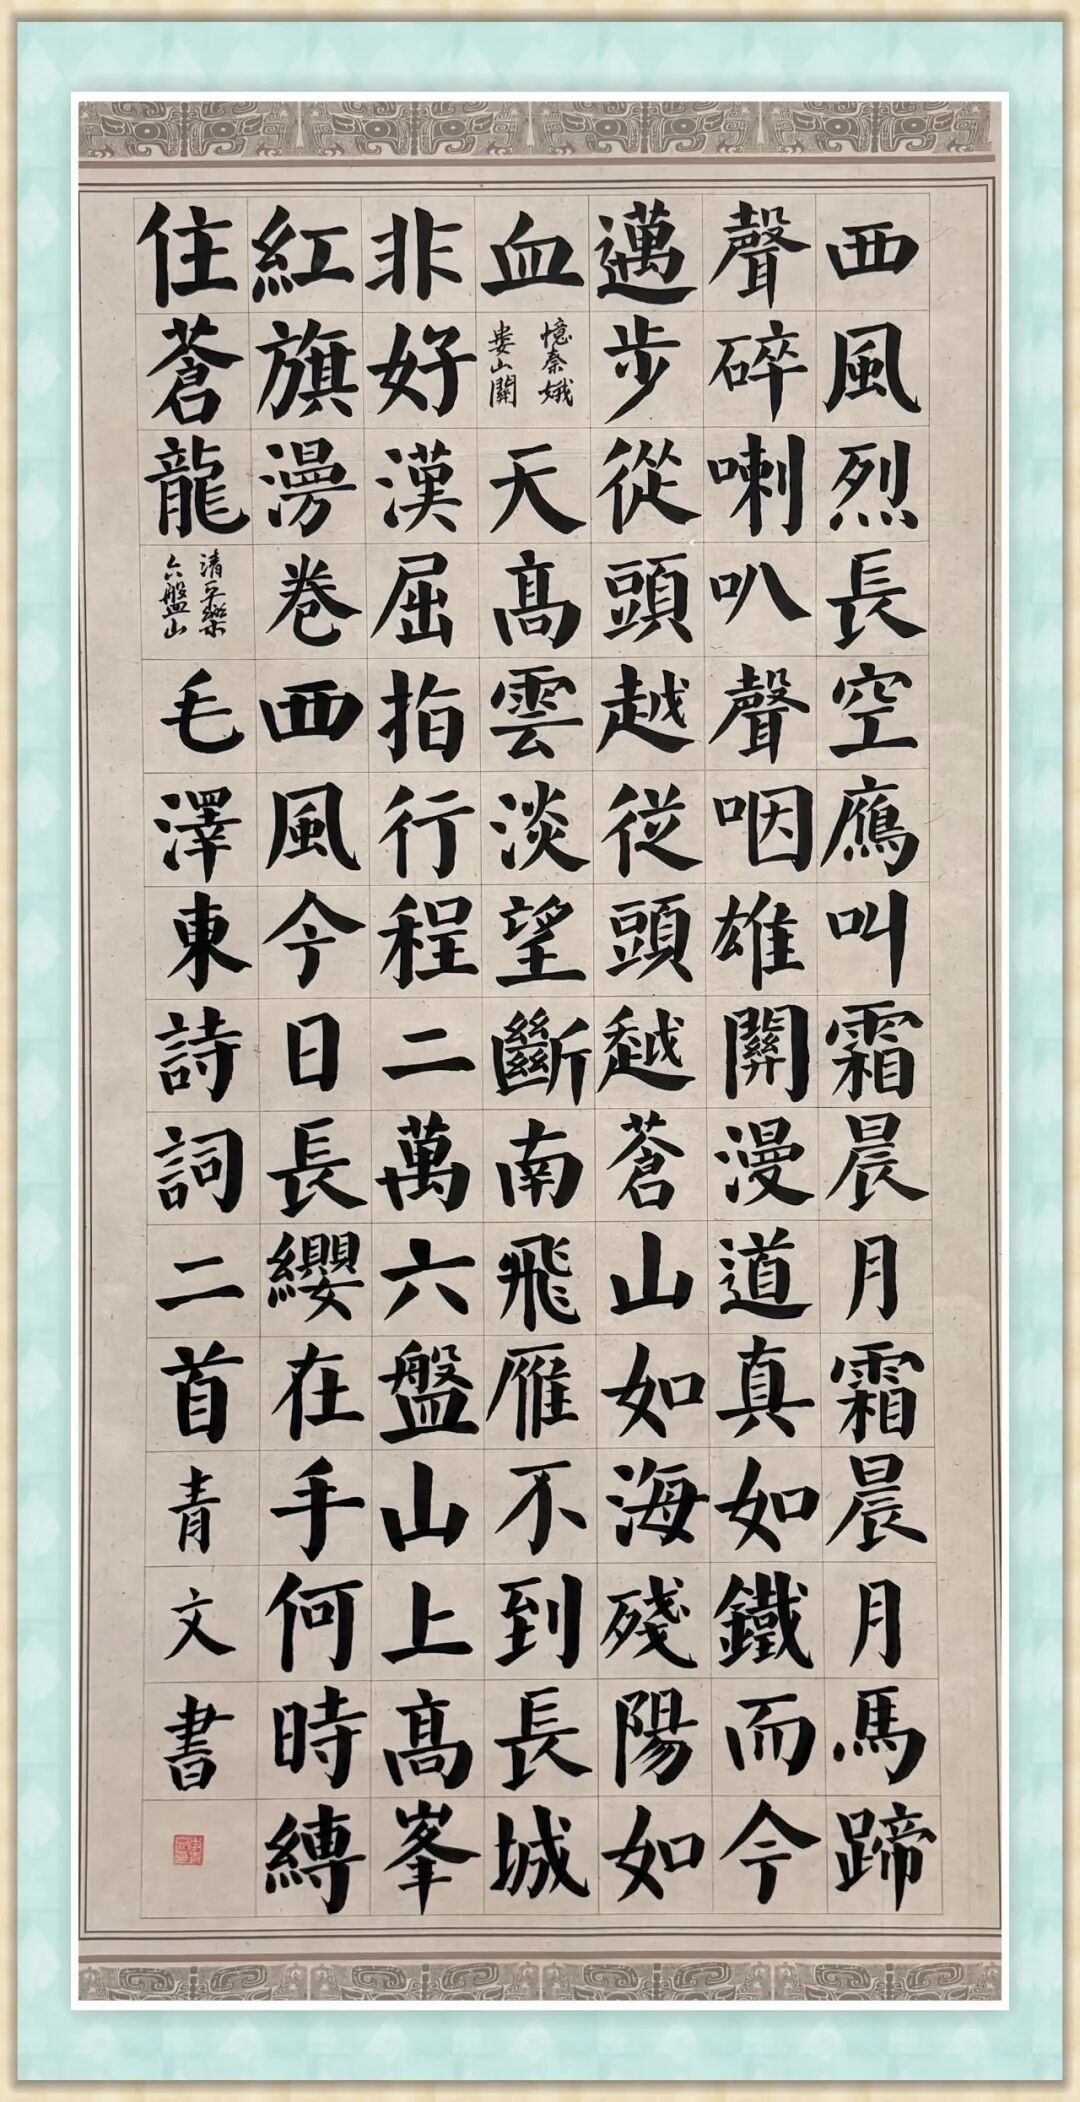 西風烈長空鴈叫霜晨月霜晨月馬蹄
聲碎喇叭聲咽雄關漫道真如鐵而今
邁步從頭越從頭越蒼山如海殘陽如
血
憶秦娥
娄山關
天高雲淡望斷南飛雁不到長城
非好漢屈指行程二萬六盤山上高峯
紅旗漫卷西風今日長纓在手何時縛
住蒼龍
清平樂
六盤山
毛澤東詩詞二首青文書